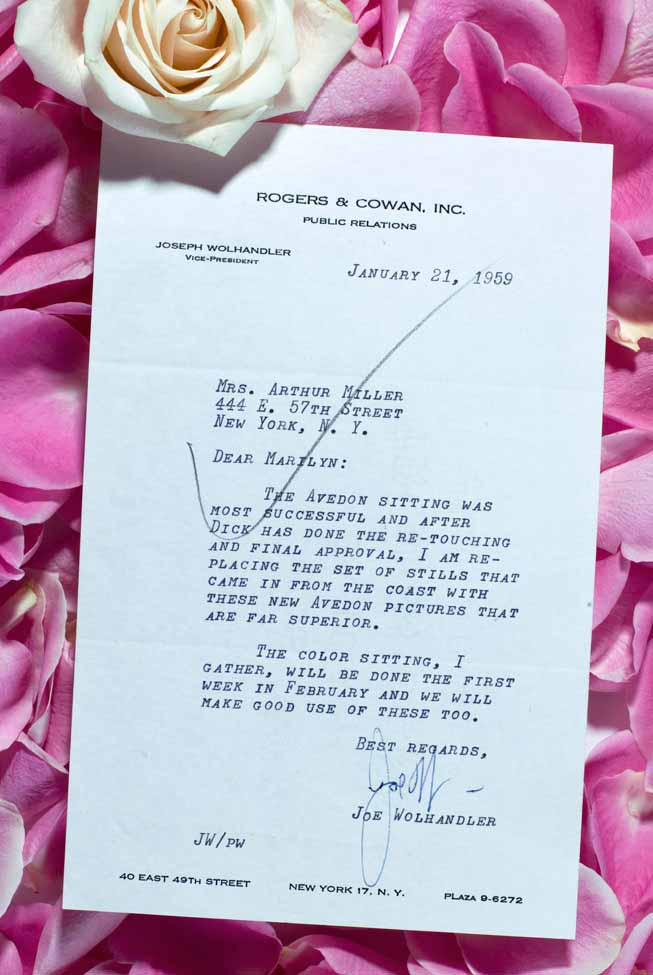 ROGERS & COWAN, INC.
PUBLIC RELATIONS
JOSEPH WOLHANDLER
VICE-PRESIDENT
JANUARY 21, 1959
MRS. ARTHUR MILLER
444 E. 57TH STREET
NEW YORK, N. Y.
DEAR MARILYN:
THE AVEDON SITTING WAS
MOST SUCCESSFUL AND AFTER
DICK HAS DONE THE RE-TOUCHING
AND FINAL APPROVAL, I AM RE-
PLACING THE SET OF STILLS THAT
CAME IN FROM THE COAST WITH
THESE NEW AVEDON PICTURES THAT
ARE FAR SUPERIOR.
THE COLOR SITTING, I
GATHER, WILL BE DONE THE FIRST
WEEK IN FEBRUARY AND WE WILL
MAKE GOOD USE OF THESE TOO.
BEST REGARDS,
Joe
JOE WOLHANDLER
JW/PW
40 EAST 49TH STREET NEW YORK 17, N. Y. PLAZA 9-6272